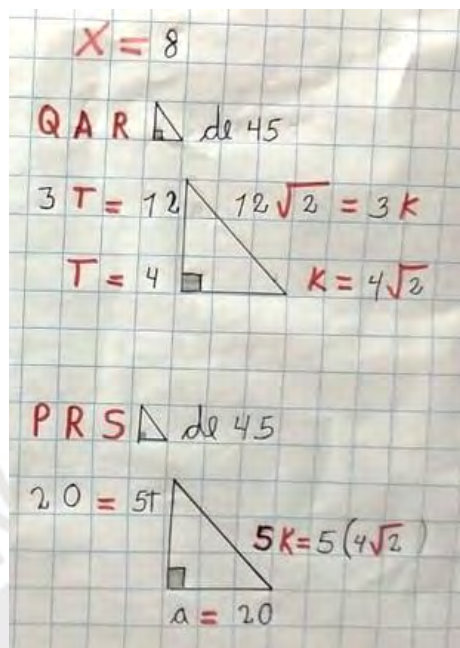 X = 8
Q A R de 45
3 T = 12 12√2 = 3 K
T = 4 K = 4√2
P R S de 45
20 = 5t
5K = 5(4√2)
a = 20